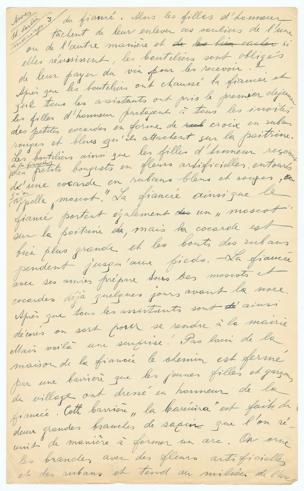 3
du fiancé. Mais les filles d'honneur
tâchent de leur enlever ces souliers de l'une
ou de l'autre manière et si
elles réussissent, les bouteliers sont obligés
de leur payer du vin pour les recevoir.
Après que les bouteliers ont chaussé la fiancée et
que tous les assistants ont pris le premier déjeuner
les filles d'honneur partagent à tous les invités
des petites cocardes en forme de croix en ruban
rouges et bleus qu'ils attachent sur la poitrine.
Les bouteliers ainsi que les filles d'honneur reçoivent
des petits bouquets en fleurs artificielles, entourés
d'une cocarde en rubans blancs et rouges,
appelle „moscot". La fiancée ainsi que le
fiancé portent également un „moscot"
sur la poitrine, mais la cocarde est
bien plus grande et les bouts des rubans
pendent jusqu'aux pieds. — La fiancée
avec ses amies prépare tous ces moscots et
cocardes déjà quelques jours avant la noce.
Après que tous les assistants sont ainsi
décorés on sort pour se rendre à la mairie
Mais voilà une surprise! Pas loin de la
maison de la fiancée le chemin est fermé
par une barrière que les jeunes filles et garçons
du village ont dressé en honneur de la
fiancée. Cette barrière „la barricira" est faite de
deux grandes branches de sapin que l'on ré-
unit de manière à former un arc. On orne
les branches avec des fleurs artificielles
et des rubans et tend au milieu de l'arc